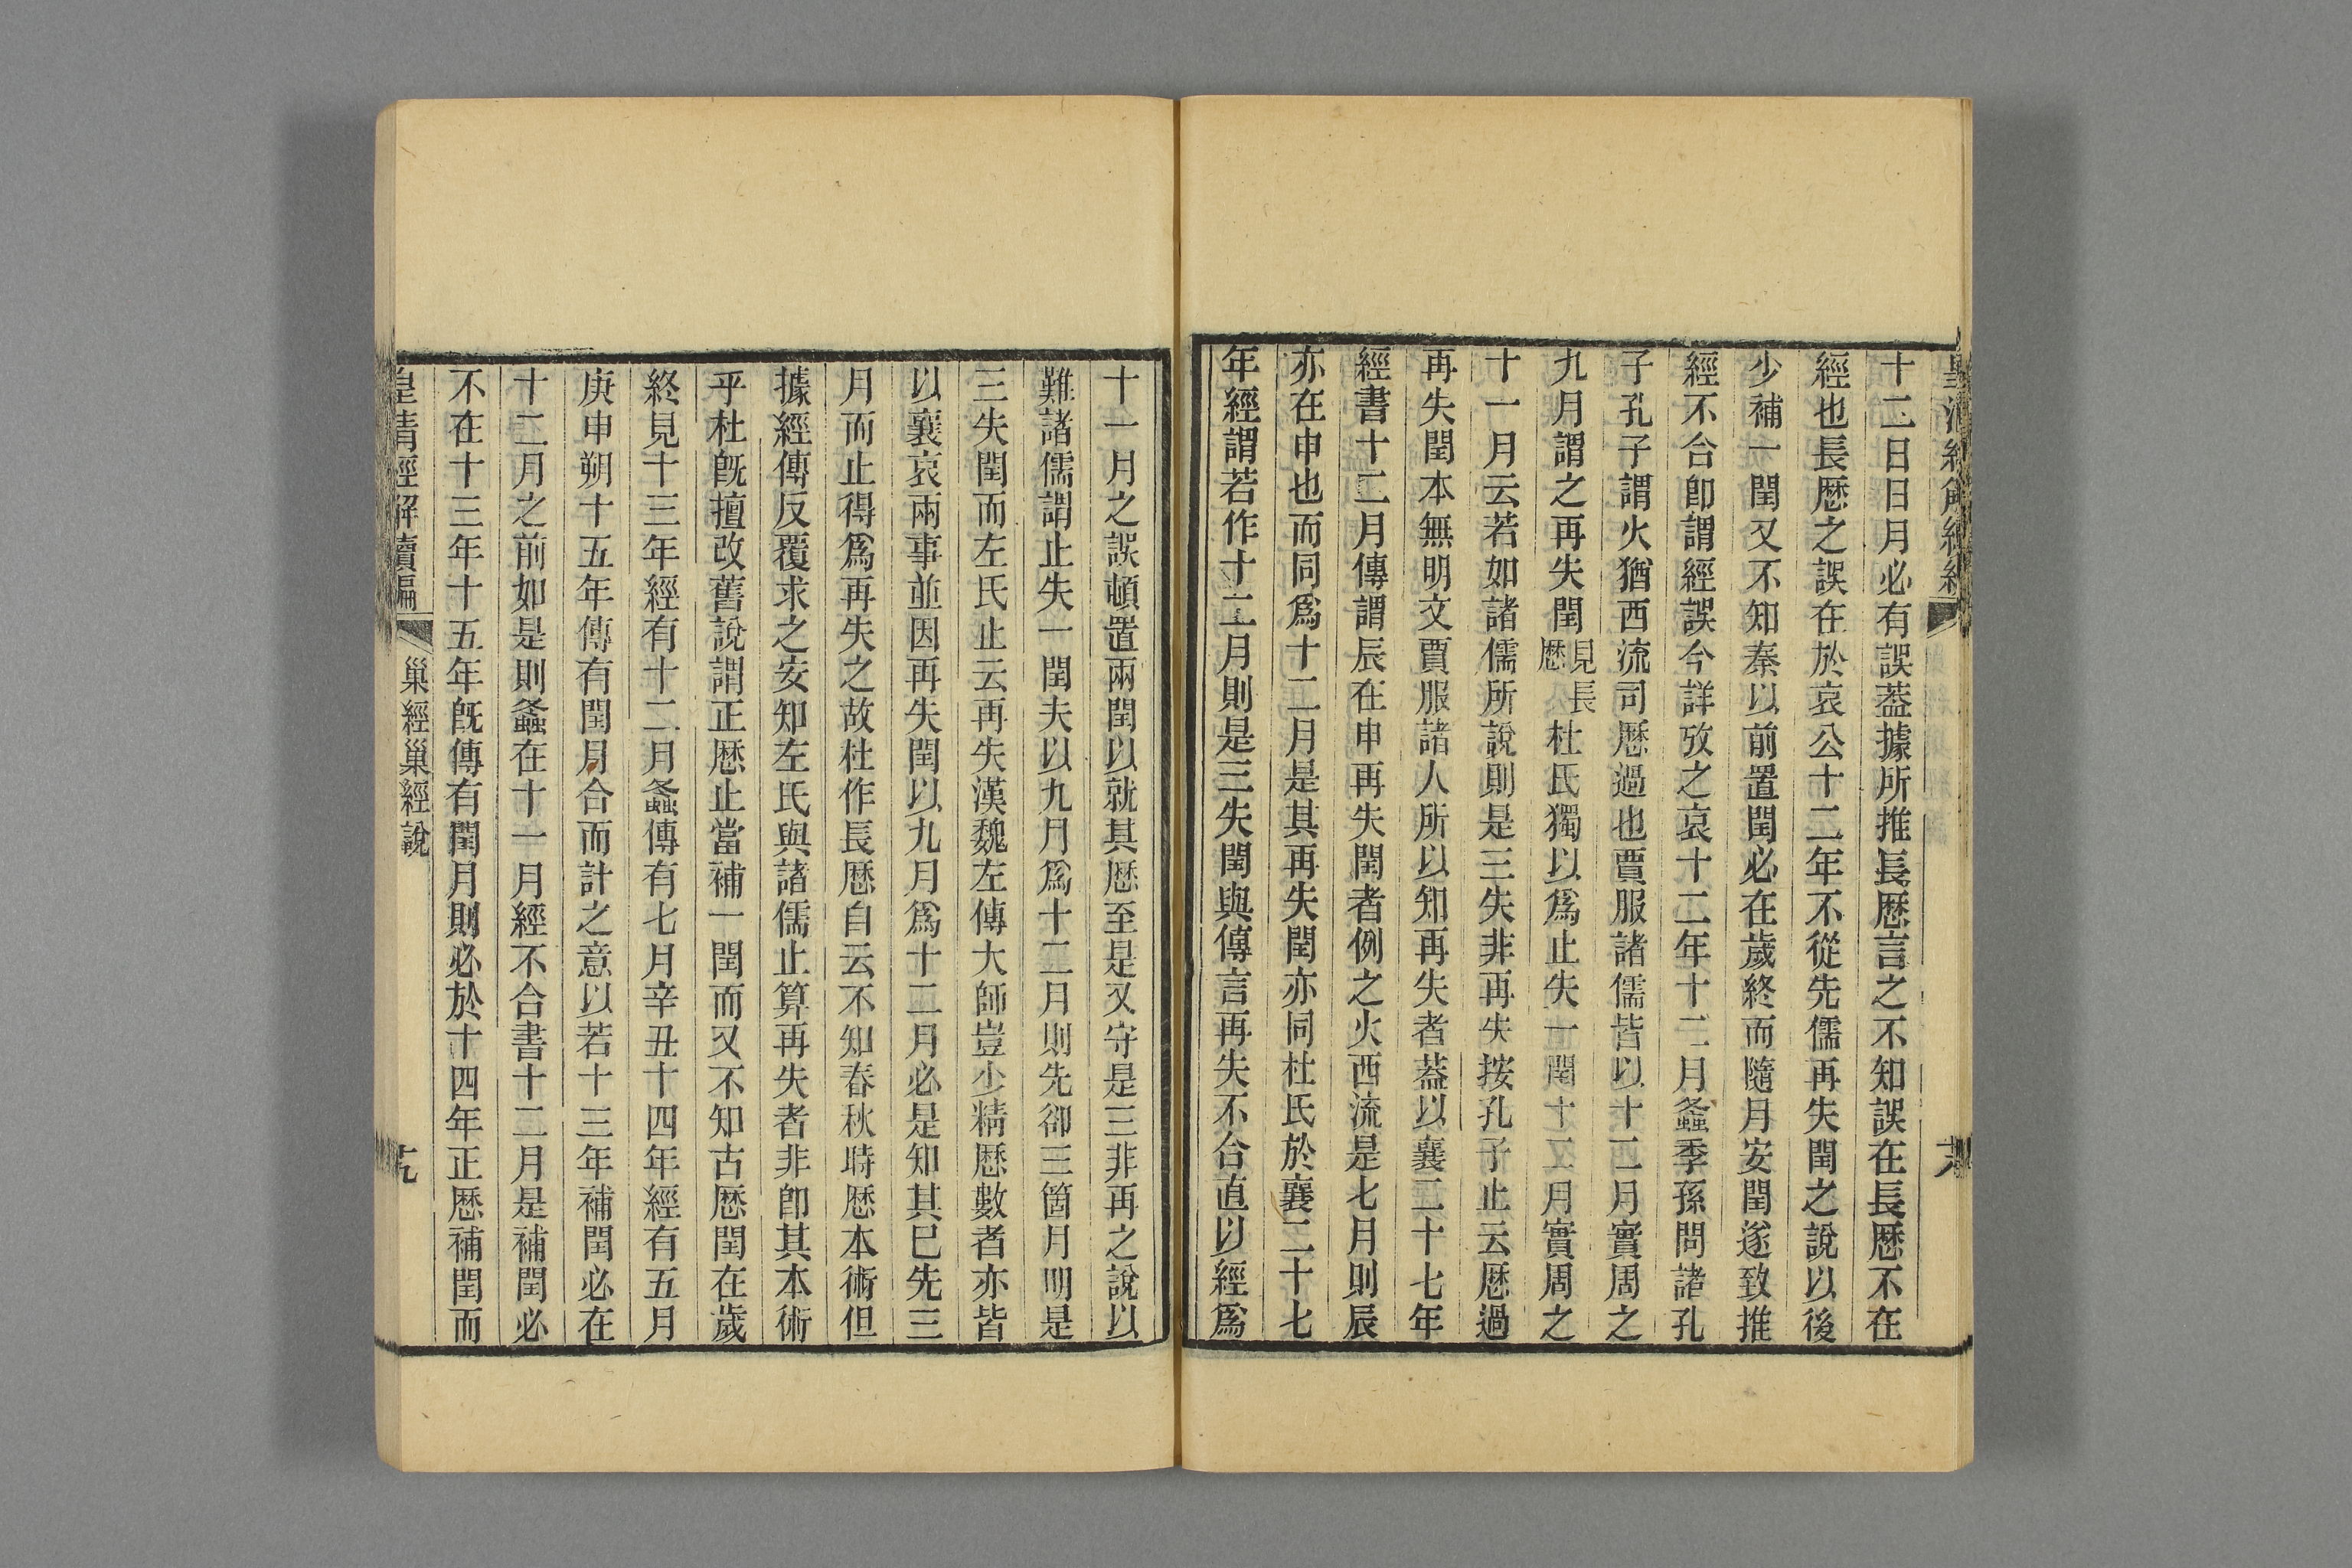 十二日日月必有誤葢據所推長厯言之不知誤在長厯不在
經也長厯之誤在於哀公十二年不從先儒再失閏之說以後
少補一閏又不知秦以前置閏必在歲終而隨月安閏遂致推
經不合卽謂經誤今詳攷之哀十二年十二月螽季孫問諸孔
子孔子謂火猶西流司厯過也賈服諸儒皆以十二月實周之
九月謂之再失閏見長厯杜氏獨以爲止失一閏十二月實周之
十一月云若如諸儒所說則是三失非再失按孔子止云厯過
再失閏本無明文賈服諸人所以知再失者葢以襄二十七年
經書十二月傳謂辰在申再失閏者例之火西流是七月則辰
亦在申也而同爲十二月是其再失閏亦同杜氏於襄二十七
年經謂若作十二月則是三失閏與傳言再失不合直以經爲
十一月之誤頓置兩閏以就其厯至是又守是三非再之說以
難諸儒謂止失一閏夫以九月爲十二月則先卻三箇月明是
三失閏而左氏止云再失漢魏左傳大師豈少精厯數者亦皆
以襄哀兩事並因再失閏以九月爲十二月必是知其巳先三
月而止得爲再失之故杜作長厯自云不知春秋時厯本術但
據經傳反覆求之安知左氏與諸儒止算再失者非卽其本術
乎杜旣擅改舊說謂正厯止當補一閏而又不知古厯閏在歲
終見十三年經有十二月螽傳有七月辛丑十四年經有五月
庚申朔十五年傳有閏月合而計之意以若十三年補閏必在
十二月之前如是則螽在十一月經不合書十二月是補閏必
不在十三年十五年旣傳有閏月則必於十四年正厯補閏而
皇清經解續編 巢經巢經說